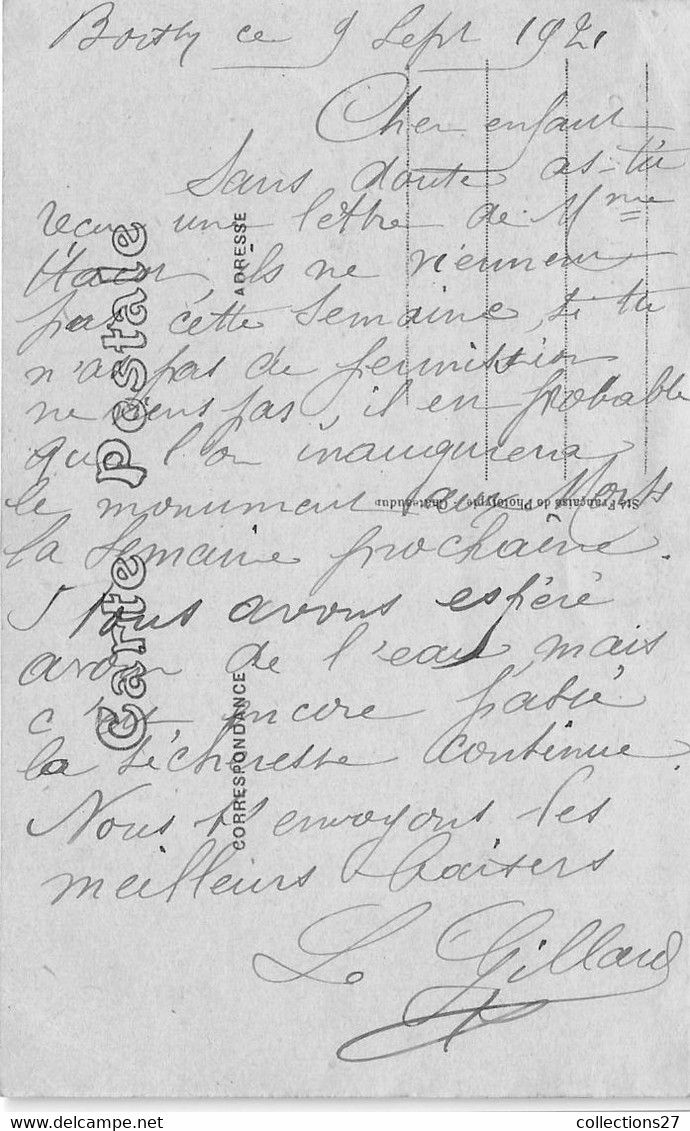 ce 9 Sept 1921
Cher enfant
Sans doute as-tu
reçu une lettre de Mme
ils ne viennent
pas cette semaine, si tu
n'as pas de permission
ne viens pas, il en probable
que l'on inaugurera
le monument aux Morts
la semaine prochaine.
Nous avons espéré
avoir de l'eau, mais
c'est encore
la sécheresse continue.
Nous t'envoyons les
meilleurs baisers
L. Gillard
Carte Postale
ADRESSE
CORRESPONDANCE
Sté Française de Phototypie - Châteaudun
collections27